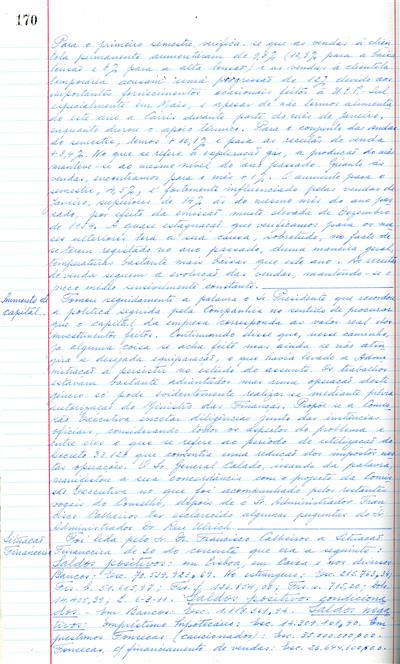 170
Para o primeiro semestre, verifica-se que as vendas à clien
tela permanente aumentaram de 9,3% (12,3% para a baixa
tensão e 8% para a alta tensão) e as vendas à clientela
temporária acusam uma progressão de 12% devido aos
importantes fornecimentos ocasionais feitos à U.E.P. Sul
especialmente em Maio, e apesar de não termos alimenta
do este ano a Carris durante parte do mês de Janeiro,
enquanto durou o apoio térmico. Para o conjunto das vendas
do semestre, temos + 10,1% e para as receitas de venda
+ 9,4%. No que se refere à exploração gás, a produção do mês
manteve-se ao mesmo nível do ano passado. Quanto às
vendas, encontramos para o mês + 1%. O aumento para o
semestre, 4,5%, é fortemente influenciado pelas vendas de
Janeiro, superiores de 14% às do mesmo mês do ano pas
sado, por efeito da emissão muito elevada de Dezembro
de 1954. A quase estagnação que verificamos para os me
ses ulteriores terá a sua causa, sobretudo, no facto de
se terem registado no ano passado, duma maneira geral,
temperaturas bastante mais baixas que este ano. As receitas
de venda seguem a evolução das vendas, mantendo-se o
preço médio sensivelmente constante.
Aumento de
capital.
Tomou seguidamente a palavra o Sr. Presidente que recordou
a política seguida pela Companhia no sentido de procurar
que o capital da empresa corresponda ao valor real dos
investimentos feitos. Continuando disse que, nesse caminho,
já alguma coisa se acha feito mas ainda se não atin
gira a desejada equiparação, o que havia levado a Admi
nistração a persistir no estudo do assunto. Os trabalhos
estavam bastante adiantados mas uma operação deste
género só pode evidentemente realizar-se mediante prévia
autorização do Ministro das Finanças. Propôs-se a Comis
são Executiva encetar diligências junto das instâncias
oficiais, considerando todos os aspectos do problema e
entre eles o que se refere ao período de utilização do
Decreto 32.128 que consentia uma redução dos impostos nes
tas operações. O Sr. General Calado, usando da palavra,
manifestou a sua concordância com o projecto da Comis
são Executiva no que foi acompanhado pelos restantes
vogais do Conselho, depois de o Sr. Administrador Fran
cisco Calheiros ter esclarecido algumas perguntas do Sr.
Administrador Dr. Ruy Ulrich.
Situação
Financeira
Foi lida pelo Sr. Dr. Francisco Calheiros a Situação
Financeira de 30 do corrente que era a seguinte:
Saldos positivos: em Lisboa, em Caixa e nos diversos
Bancos: Esc.
No estrangeiro:
Saldos positivos condiciona
dos. - Em Bancos: Esc.
Saldos nega
tivos: Empréstimo hipotecário: Esc. 14.209.101,90. Em
préstimos Fonsecas (caucionados): Esc. 35.000.000,00.
Fonsecas, c/ financiamento de vendas: Esc. 26.644.600,00.